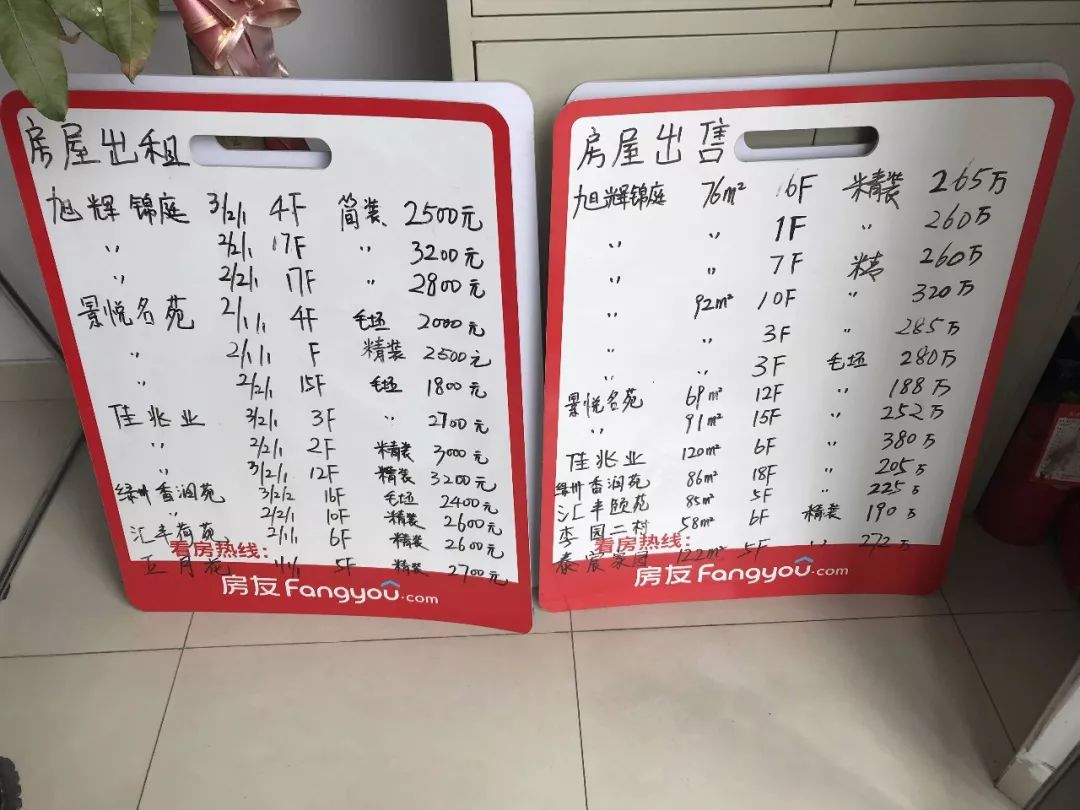 房屋出租
旭辉锦庭 3/2/1 4F 简装 2500元
〃 2/2/1 17F 〃 3200元
〃 2/2/1 17F 〃 2800元
景悦名苑 2/1/1 4F 毛坯 2000元
〃 2/1/1 F 精装 2500元
〃 2/2/1 15F 毛坯 1800元
佳兆业 3/2/1 3F 〃 2700元
〃 2/2/1 2F 精装 3000元
〃 3/2/1 12F 精装 3200元
绿州香润苑 3/2/2 16F 毛坯 2400元
〃 2/2/1 10F 精装 2600元
汇丰荷苑 2/1/1 6F 精装 2600元
看房热线:
五月花 1/1/1 5F 精装 2700元
房友Fangyou.com
房屋出售
旭辉锦庭 76m² 6F 精装 265万
〃 〃 1F 〃 260万
〃 〃 7F 精 260万
〃 92m² 10F 〃 320万
〃 3F 〃 285万
〃 3F 毛坯 280万
景悦名苑 69m² 12F 〃 188万
〃 91m² 15F 〃 252万
佳兆业 120m² 6F 〃 380万
绿州香润苑 86m² 18F 〃 205万
汇丰颐苑 85m² 5F 〃 225万
李园二村 58m² 6F 精装 190万
看房热线:
泰宸家园 122m² 5F 〃 272万
房友Fangyou.com